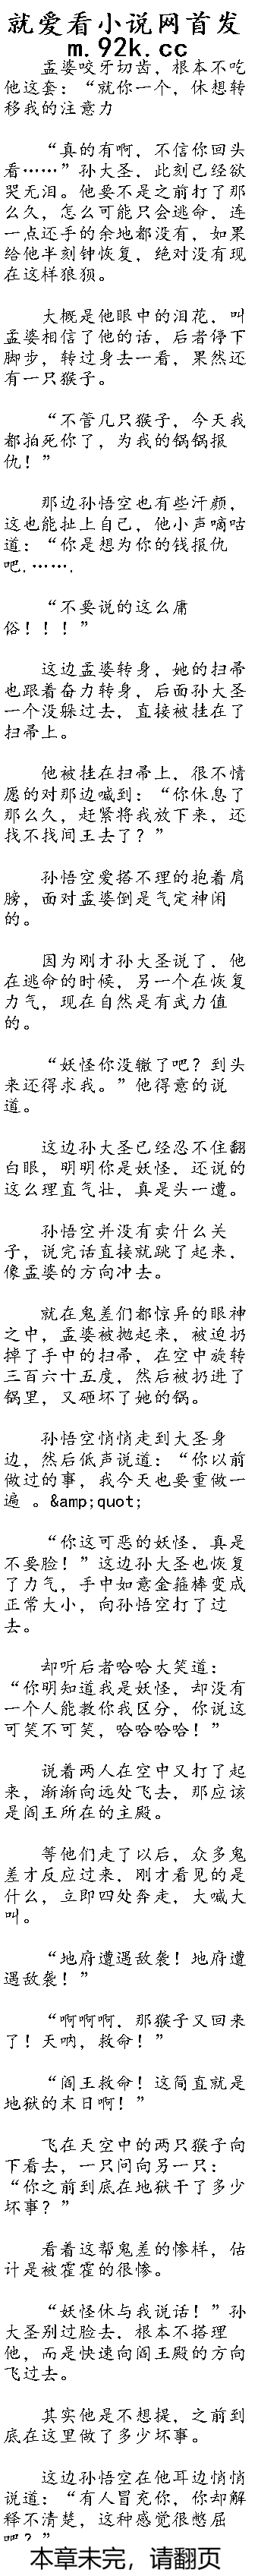 就爱看小说网首发
m.92k.cc
孟婆咬牙切齿，根本不吃
他这套：“就你一个，休想转
移我的注意力
“真的有啊，不信你回头
看……”孙大圣，此刻已经欲
哭无泪。他要不是之前打了那
么久，怎么可能只会逃命，连
一点还手的余地都没有，如果
给他半刻钟恢复，绝对没有现
在这样狼狈。
大概是他眼中的泪花，叫
孟婆相信了他的话，后者停下
脚步，转过身去一看，果然还
有一只猴子。
“不管几只猴子，今天我
都拍死你了，为我的锅锅报
仇！”
那边孙悟空也有些汗颜，
这也能扯上自己，他小声嘀咕
道：“你是想为你的钱报仇
吧.…….
“不要说的这么庸
俗！！！”
这边孟婆转身，她的扫帚
也跟着奋力转身，后面孙大圣
一个没躲过去，直接被挂在了
扫帚上。
他被挂在扫帚上，很不情
愿的对那边喊到：“你休息了
那么久，赶紧将我放下来，还
找不找阎王去了？”
孙悟空爱搭不理的抱着肩
膀，面对孟婆倒是气定神闲
的。
因为刚才孙大圣说了，他
在逃命的时候，另一个在恢复
力气，现在自然是有武力值
的。
“妖怪你没辙了吧？到头
来还得求我。”他得意的说
道。
这边孙大圣已经忍不住翻
白眼，明明你是妖怪，还说的
这么理直气壮，真是头一遭。
孙悟空并没有卖什么关
子，说完话直接就跳了起来，
像孟婆的方向冲去。
就在鬼差们都惊异的眼神
之中，孟婆被抛起来，被迫扔
掉了手中的扫帚，在空中旋转
三百六十五度，然后被扔进了
锅里，又砸坏了她的锅。
孙悟空悄悄走到大圣身
边，然后低声说道：“你以前
做过的事，我今天也要重做一
遍 。&amp;quot;
“你这可恶的妖怪，真是
不要脸！”这边孙大圣也恢复
了力气，手中如意金箍棒变成
正常大小，向孙悟空打了过
去。
却听后者哈哈大笑道：
“你明知道我是妖怪，却没有
一个人能教你我区分，你说这
可笑不可笑，哈哈哈哈！”
说着两人在空中又打了起
来，渐渐向远处飞去，那应该
是阎王所在的主殿。
等他们走了以后，众多鬼
差才反应过来，刚才看见的是
什么，立即四处奔走，大喊大
叫。
“地府遭遇敌袭！地府遭
遇敌袭！”
“啊啊啊，那猴子又回来
了！天呐，救命！”
“阎王救命！这简直就是
地狱的末日啊！”
飞在天空中的两只猴子向
下看去，一只问向另一只：
“你之前到底在地狱干了多少
坏事？”
看着这帮鬼差的惨样，估
计是被霍霍的很惨。
“妖怪休与我说话！”孙
大圣别过脸去，根本不搭理
他，而是快速向阎王殿的方向
飞过去。
其实他是不想提，之前到
底在这里做了多少坏事。
这边孙悟空在他耳边悄悄
说道：“有人冒充你，你却解
释不清楚，这种感觉很憋屈
吧？”
本章未完，请翻页